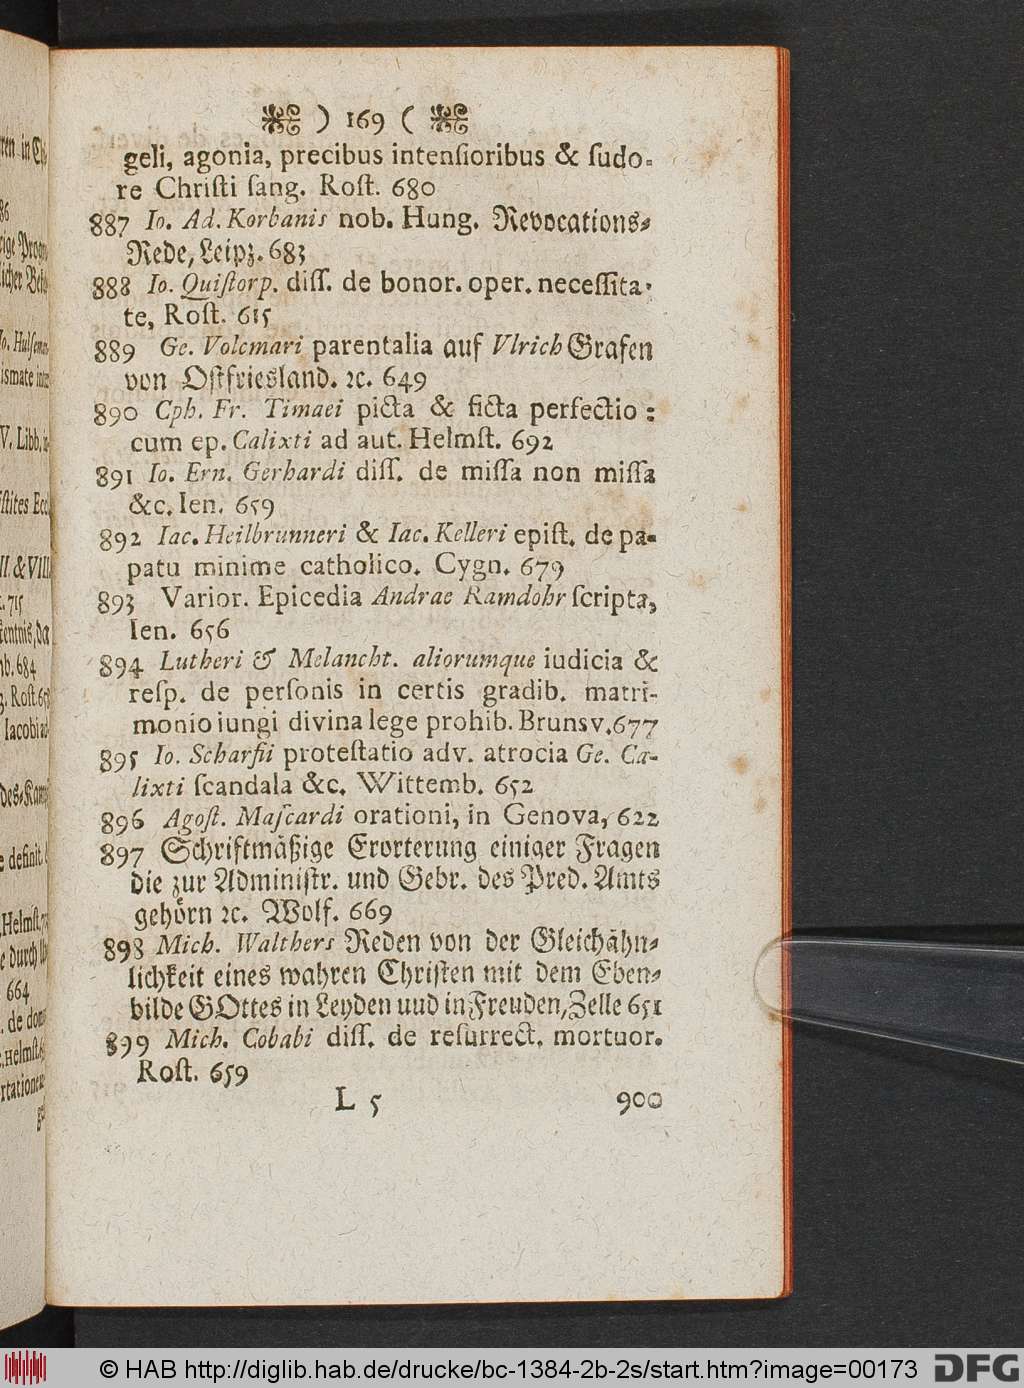 ) 169 (
geli, agonia, precibus intensioribus & sudo-
re Christi sang. Rost. 680
887 Io. Ad. Korbanis nob. Hung. Revocations-
Rede, Leipz. 683
888 Io. Quistorp. diss. de bonor. oper. necessita-
te, Rost. 615
889 Ge. Volcmari parentalia auf Vlrich Grafen
von Ostfriesland. ꝛc. 649
890 Cph. Fr. Timaei picta & ficta perfectio:
cum ep. Calixti ad aut. Helmst. 692
891 Io. Ern. Gerhardi diss. de missa non missa
&c. Ien. 659
892 Iac. Heilbrunneri & Iac. Kelleri epist. de pa-
patu minime catholico. Cygn. 679
893 Varior. Epicedia Andrae Ramdohr scripta,
Ien. 656
894 Lutheri & Melancht. aliorumque iudicia &
resp. de personis in certis gradib. matri-
monio iungi divina lege prohib. Brunsv. 677
895 Io. Scharfii protestatio adv. atrocia Ge. Ca-
lixti scandala &c. Wittemb. 652
896 Agost. Mascardi orationi, in Genova, 622
897 Schriftmäßige Erorterung einiger Fragen
die zur Administr. und Gebr. des Pred. Amts
gehörn ꝛc. Wolf. 669
898 Mich. Walthers Reden von der Gleichähn-
lichkeit eines wahren Christen mit dem Eben-
bilde GOttes in Leyden uud in Freuden, Zelle 651
899 Mich. Cobabi diss. de resurrect. mortuor.
Rost. 659
L 5 900
© HAB http://diglib.hab.de/drucke/bc-1384-2b-2s/start.htm?image=00173 DFG